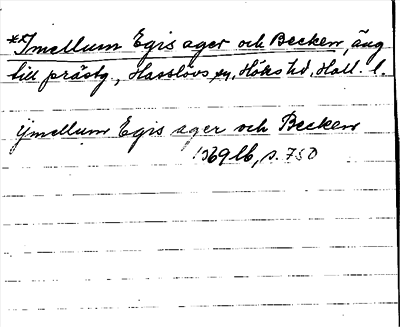 *Imellum Egis ager och Becken, äng
till prästg., Hasslövs sn, Höks hd, Hall. l.
ÿmellum Egis ager och Becken
1569 lb, s. 750